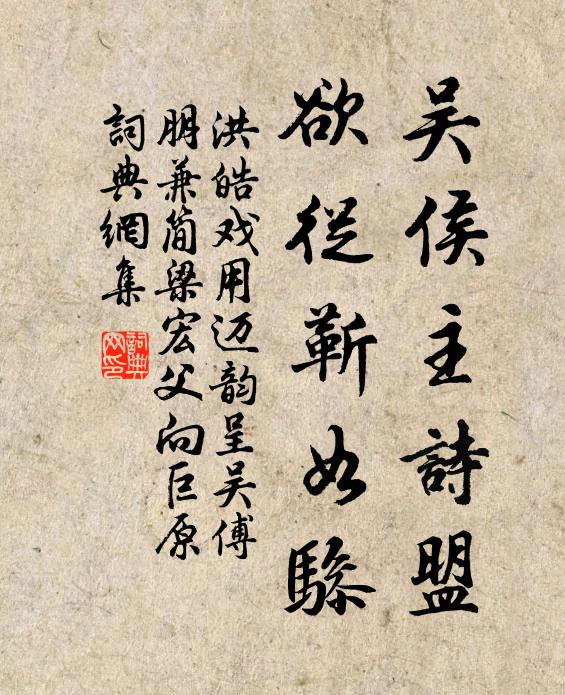 吴侯主詩盟
欲從靳如驂
洪皓戏用迈韵呈吴傅
朋兼简梁宏父向巨原
詞典網集
詞典网印